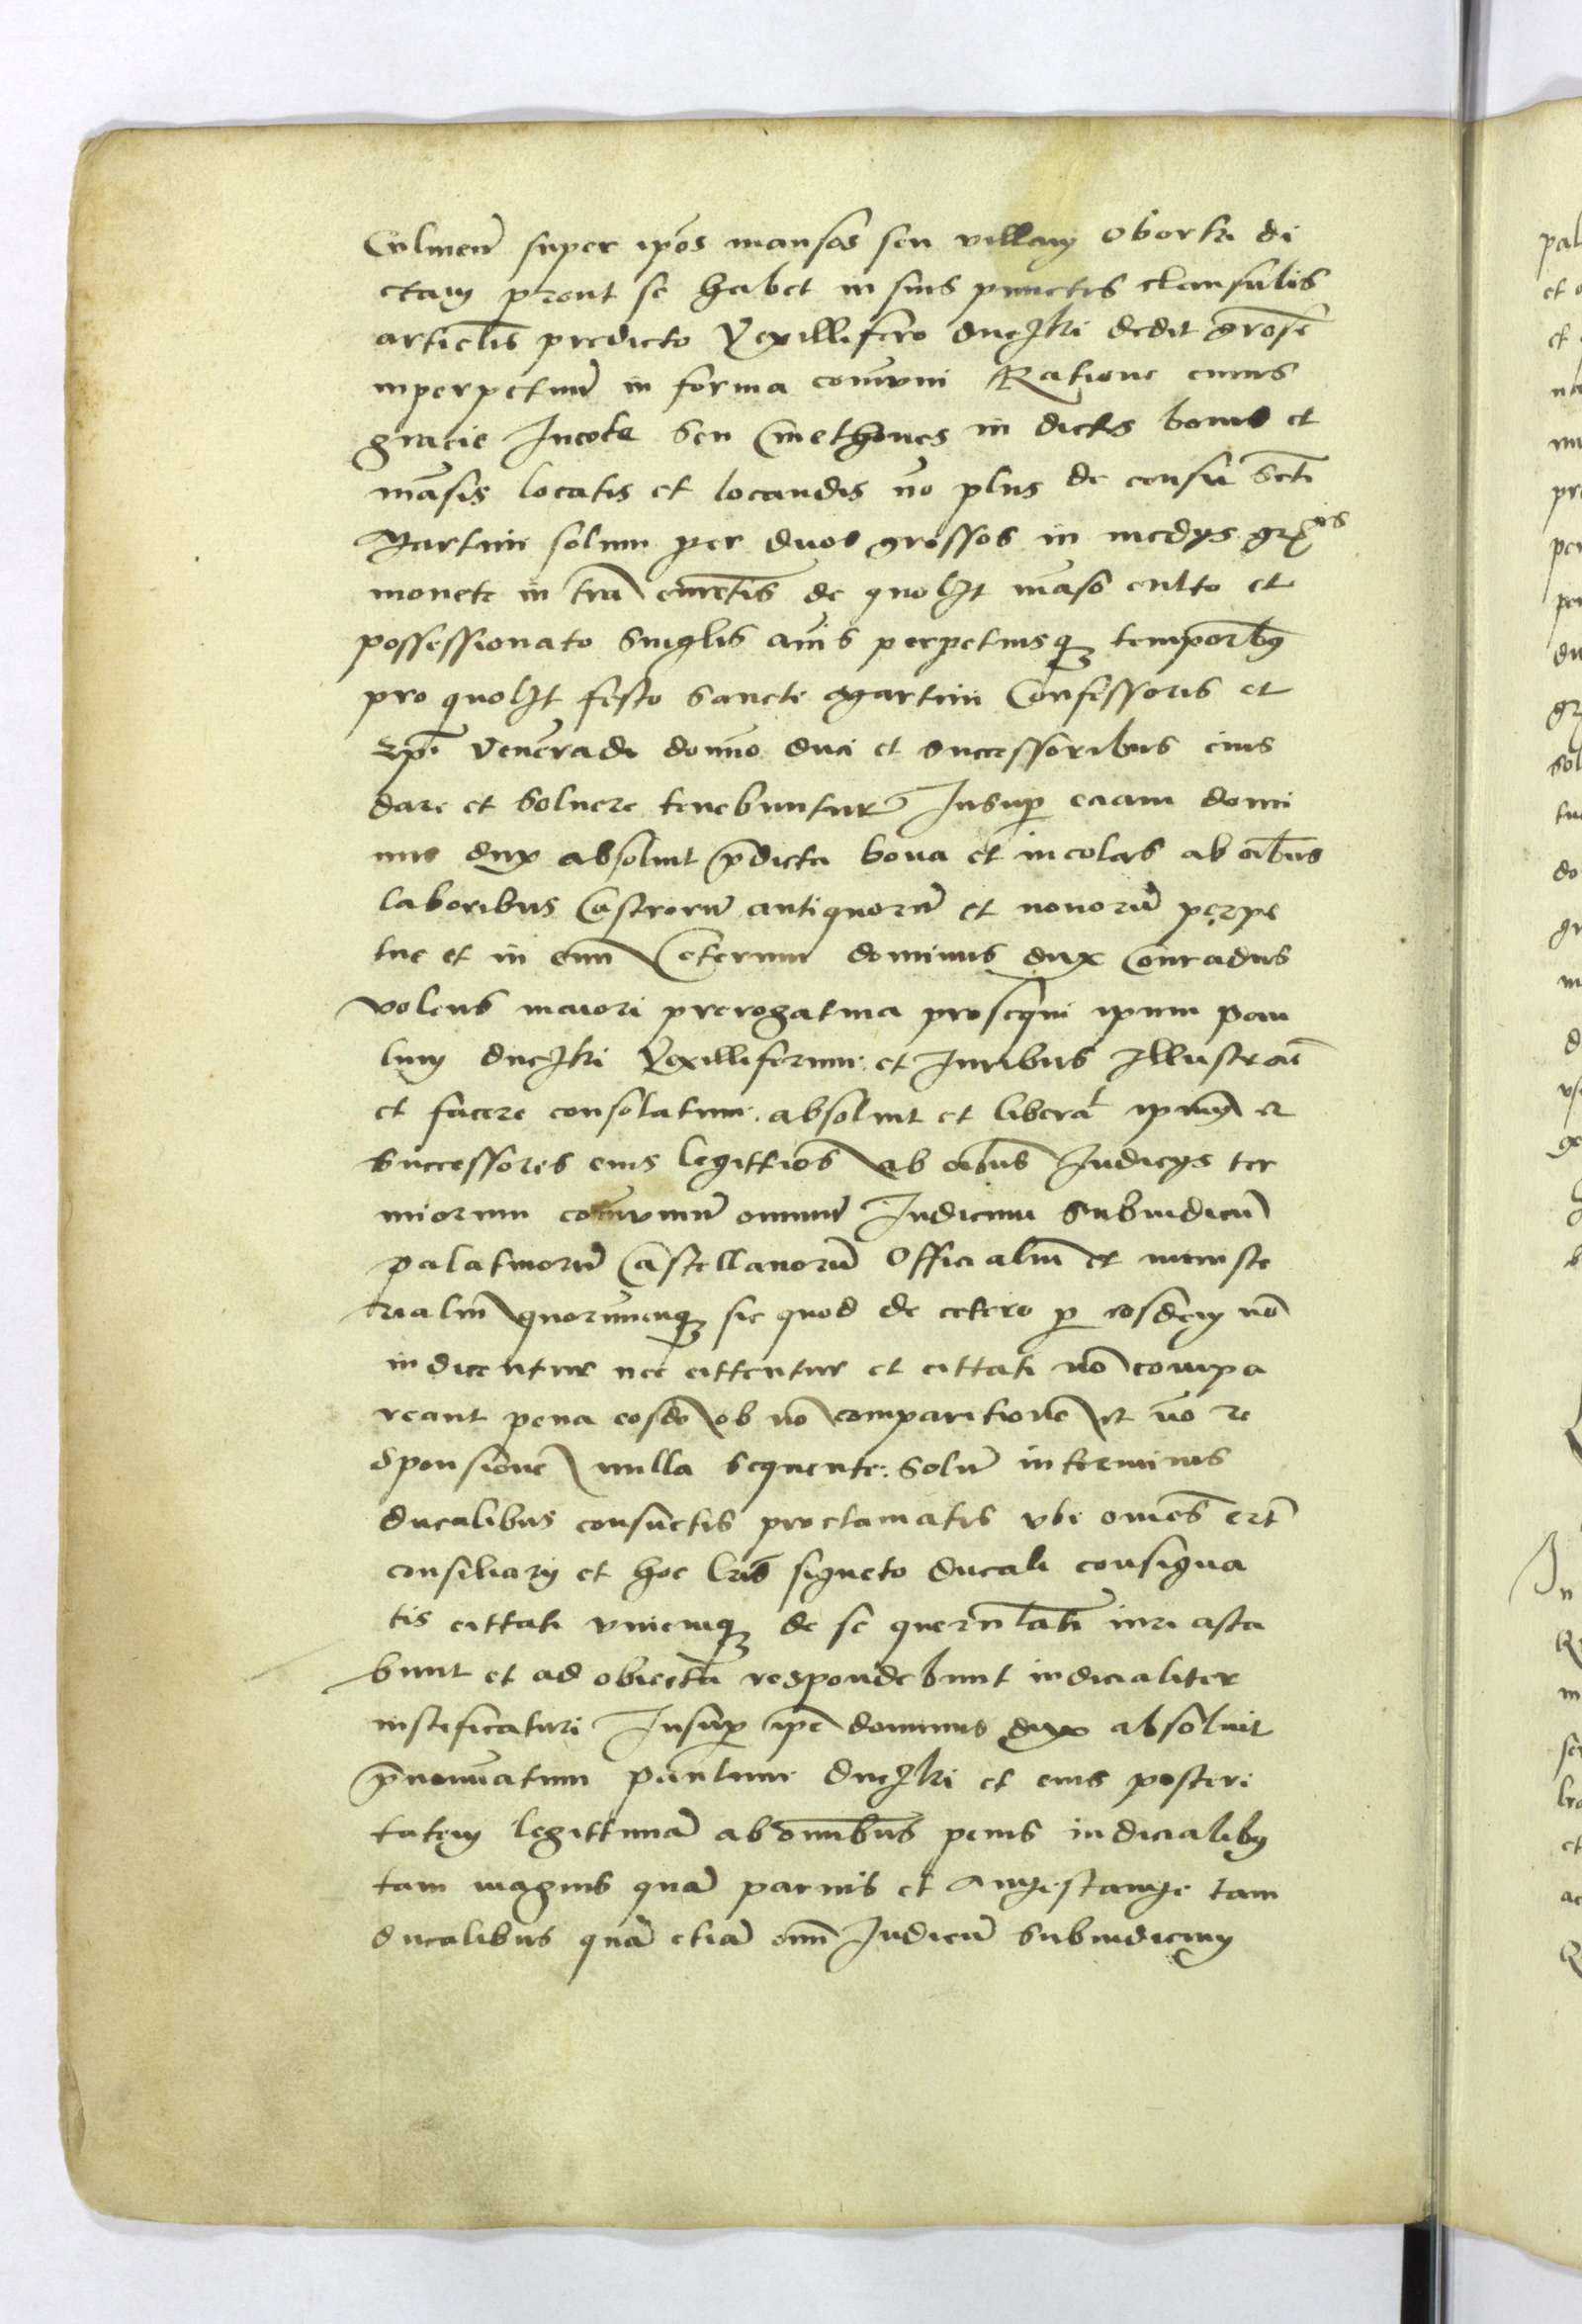 Culmen̄ super ip̄os mansos seu villam Oborki di
ctam prout se habet in suis punctis clausulis
articl̄is predicto Vexillifero duczki dedit grōse
inperpetuū in forma com̄uni Ratione cuius
gracie Incole seu Cmethones in dictis bonis et
māsis locatis et locandis nō plus de censu Scti
Martini solum per duos grossos in medys grx̄is
monete in trā curētis de quolzt māso culto et
possessionato singlis ānis perpetuisqz temporibꝫ
pro quolzt festo Sancti Martini Confessoris et
Ep̄i venerādi domno duci et successoribus eius
dare et soluere tenebuntur Insuꝑ eciam domi
nus dux absoluit p̄dicta bona et incolas ab oībus
laboribus Castrorū antiquorū et nouorū perpe
tue et in euū Ceterum dominus dux Conradus
volens maiori prerogatiua prosequi ipsum pau
lum duczki Vexilliferum et Iuribus Illustrare
et facere consolatum absoluit et liberat̄ ipsum et
successores eius legittīos ab oībus Iudicys ter
minorum com̄uniū omniū Iudicum Subiudicū
palatinorū Castellanorū Officialiū et ministe
rialiū quorūcunqz sic quod de cetero ꝑ eosdem nō
iudicentur nec cittentur et cittati nō compa
reant pena eosdē ob nō comparitionē et nō re
sponsionē nulla sequente Solū in terminis
ducalibus consuetis proclamatis vbi omēs erūt
consiliary et hoc lrīs signeto ducali consigna
tis cittati vnicuiqz de se querulāti iuri asta
bunt et ad obiecta respondebunt iudicialiter
iusteficaturi Insuꝑ ip̄e dominus dux absoluit
p̄nominatum paulum duczki et eius posteri
tatem legittimā ab omībus penis iudicialibꝫ
tam magnis quā paruis et Angestange tam
ducalibus quā etiā omī Iudicū Subiudicum